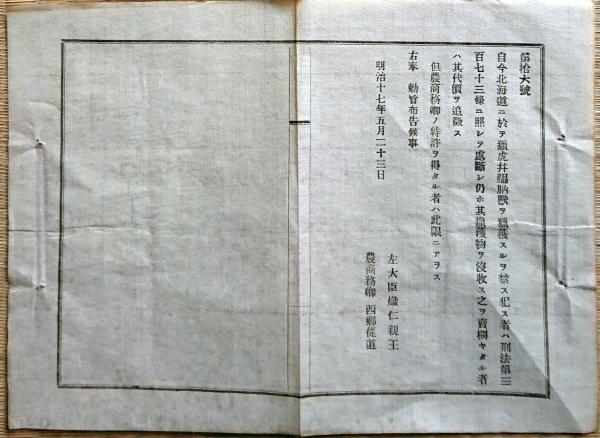 第拾六號
自今北海道ニ於テ獵虎幷膃肭獸ヲ獵獲スルヲ禁ス犯ス者ハ刑法第三
百七十三條ニ照シテ處斷シ仍ホ其獵獲物ヲ沒收ス之ヲ賣捌キタル者
ハ其代價ヲ追徵ス
但農商務卿ノ特許ヲ得タル者ハ此限ニアラス
右奉　勅旨布告候事
明治十七年五月二十三日
左大臣熾仁親王
農商務卿　西鄕從道